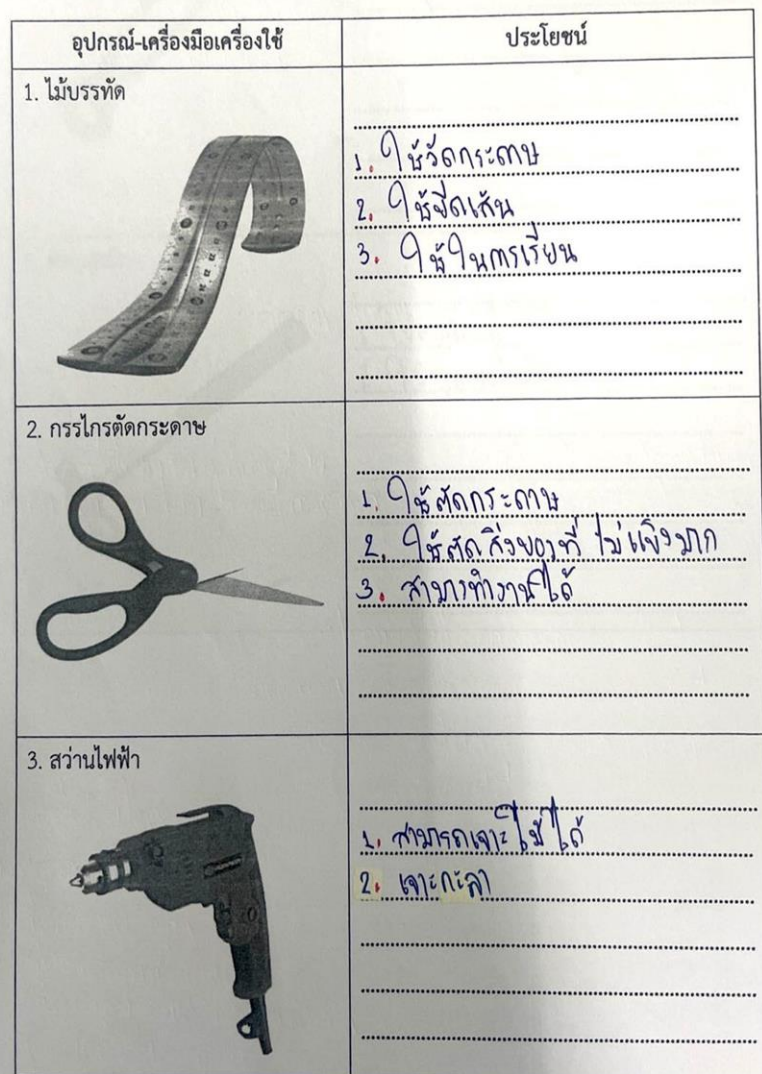 อุปกรณ์-เครื่องมือเครื่องใช้
ประโยชน์
1. ไม้บรรทัด
1. ใช้วัดกระดาษ
2. ใช้ขีดเส้น
3. ใช้ในการเรียน
2. กรรไกรตัดกระดาษ
1. ใช้ตัดกระดาษ
2. ใช้ตัดสิ่งของที่ ไม่แข็งมาก
3. ได้
3. สว่านไฟฟ้า
1. สามารถเจาะไม้ได้
2. เจาะกะลา